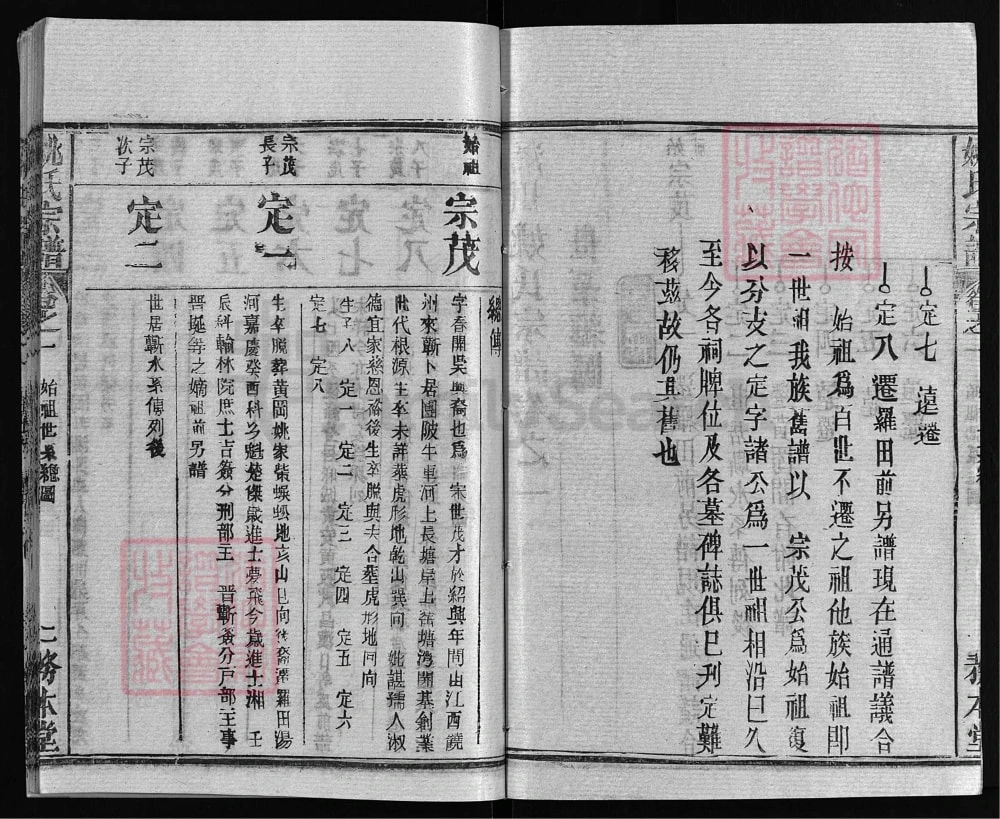 定七 遠遷
定八 遷羅田前另譜現在通譜議合
按 始祖爲百世不遷之祖他族始祖即
一世祖我族舊譜以 宗茂公爲始祖復
以分支之定字諸公爲一世祖相沿已久
至今各祠牌位及各墓碑誌俱已刊定難
移茲故仍其舊也
姚氏宗譜
務本堂
始祖
宗茂
總傳
字春開吳興裔也爲 宋世茂才於紹興年間由江西饒
州來蘄卜居團陂牛車河上長塘岸上舊塘灣開基創業
世代根源生卒未詳葬虎形地乾山巽向 妣諶孺人淑
德宜家慈恩裕後生卒脫與夫合塟虎形地同向
生子八 定一 定二 定三 定四 定五 定六
定七 定八
宗茂
長子
定一
生卒脫葬黃岡姚家柴蜈蚣地亥山巳向後裔
羅田湯
河嘉慶癸酉科
魁楚傑歲進士夢飛今歲進士湘 壬
辰科翰林院庶士吉簽分刑部主 晋蘄簽分戸部主事
晋
等之嫡祖前另譜
宗茂
次子
定二
世居蘄水系傳列後
姚氏宗譜
卷之一
始祖世系總圖
二
務本堂